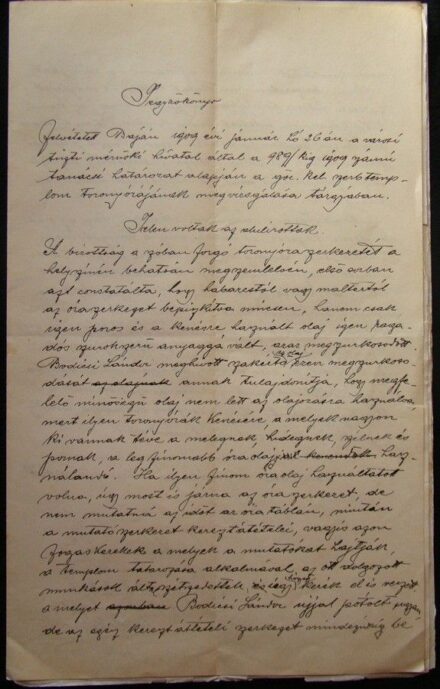 Jegyzőkönyv
Felvétetett Baján 1909 évi január hó 26án a városi
tiszti mérnöki hivatal által a 989/kig 1909 számú
tanácsi határozat alapján a gör. kel. szerb temp-
lom toronyórájának megvizsgálása tárgyában.
Jelen voltak az alulirottak.
A bizottság a szóban forgó toronyóra szerkezetét a
helyszinén behatóan megszemlélvén, első sorban
azt constatálta, hogy habarcstól vagy maltertól
az óraszerkezet bepiszkitva nincsen, hanem csak
igen poros és a kenésre használt olaj igen raga-
dós szurokszerű anyaggá vált, azaz megszurkosodott
Bodicsi Sándor meghivott szakértő az olaj ezen megszurkoso-
dását annak tulajdonitja, hogy megfe-
lelő minőségű olaj nem lett az olajozásra használva
mert ilyen toronyórák kenésére, a melyek nagyon
ki vannak téve a melegnek, hidegnek, szélnek és
pornak, a legfinomabb óraolaj hasz-
nálandó. Ha ilyen finom óraolaj használtatott
volna, úgy most is járna az óraszerkezet, de
nem mutatná az időt az óratáblán, miután
a mutató szerkezet keresztátételei, vagyis azon
fogaskerekek a melyek a mutatókat hajtják,
a templom tatarozása alkalmával, az ott dolgozott
munkások által szétszedettek, és egy kerék el is veszett
a melyet Bodicsi Sándor ujjal pótolt ugyan
de az egész keresztátételi szerkezet mindezideig be